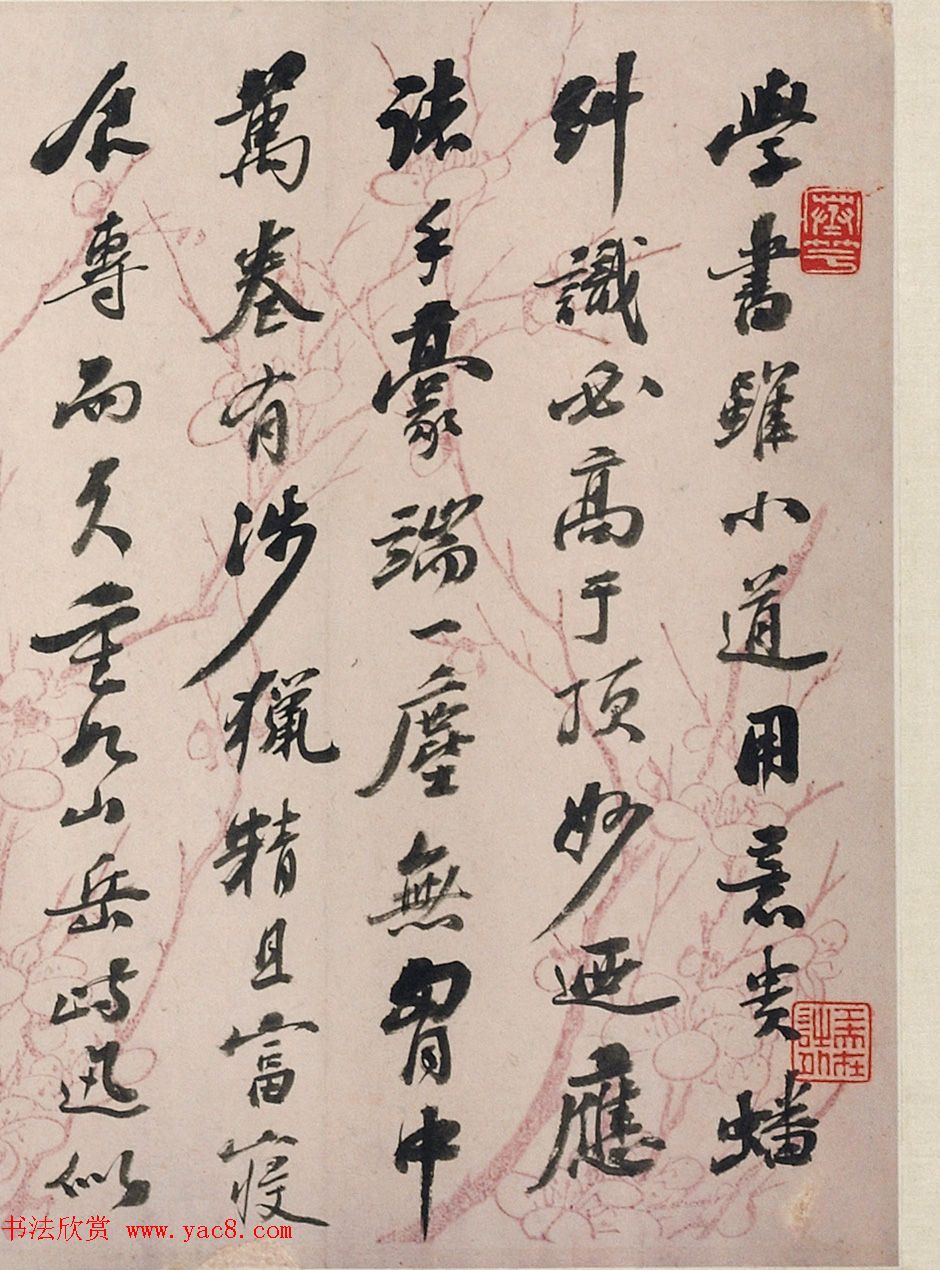 學書雖小道用意貴蟠
糾識必高于頂妙迺應
諸手豪端一塵無胷中
萬卷有涉獵精且富寢
食專而久重如山岳峙迅似
书法欣赏 www.yac8.com